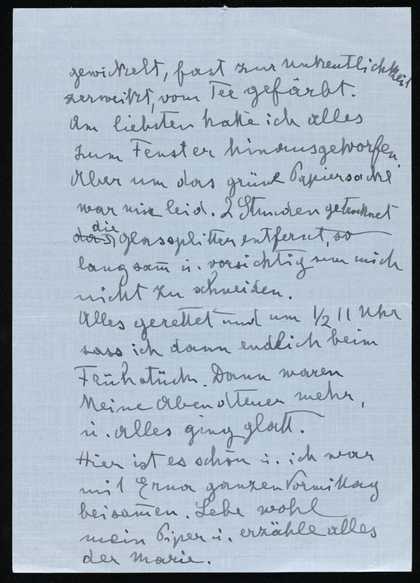 gewickelt, fast zur Unkentlichkeit
zerweikt, vom Tee gefärbt.
Am liebsten hatte ich alles
zum Fenster hinausgeworfen.
Aber um das grüne Papiersackl
war mir leid. 2 Stunden getrocknet
die Glassplitter entfernt, so
langsam u. vorsichtig um mich
nicht zu schneiden.
Alles gerettet und um 1/2 11 Uhr
sass ich dann endlich beim
Frühstück. Dann waren
keine Abendteuer mehr,
u. alles ging glatt.
Hier ist es schön u. ich war
mit Erna ganzen Vormittag
beisam̄en. Lebe wohl
mein Piper u. erzähle alles
der Marie.